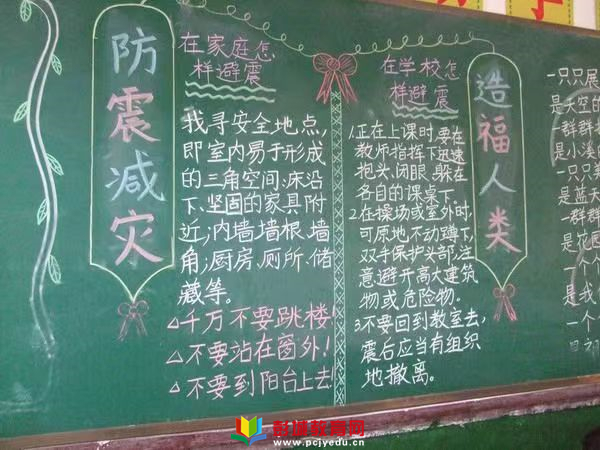 防震减灾
在家庭怎
样避震
找寻安全地点,
即室内易于形成
的三角空间:床沿
下、坚固的家具附
近;内墙墙根、墙
角;厨房、厕所、储
藏等。
△千万不要跳楼!
△不要站在窗外!
△不要到阳台上去!
在学校怎
样避震
1.正在上课时,要在
教师指挥下迅速
抱头、闭眼、躲在
各自的课桌下。
2.在操场或室外时,
可原地不动蹲下,
双手保护头部,注
意避开高大建筑
物或危险物。
3.不要回到教室去,
震后应当有组织
地撤离。
造福人类
一只只展
是天空的
一群群
是小溪
一只只
是蓝天
一群群
是花
一个个
是我
一个
彭城教育网
www.pcjyedu.cn